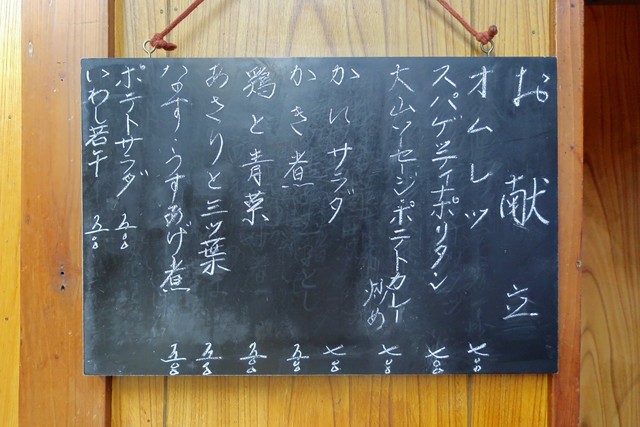 お献立
オムレツ 七〇〇
スパゲティナポリタン 七〇〇
大山ソーセージ・ポテトカレー炒め 七〇〇
かにサラダ 七〇〇
かき煮 五〇〇
鶏と青菜 五〇〇
あさりと三ツ葉 五〇〇
なす・うすあげ煮 五〇〇
ポテトサラダ 五〇〇
いわし若干 五〇〇